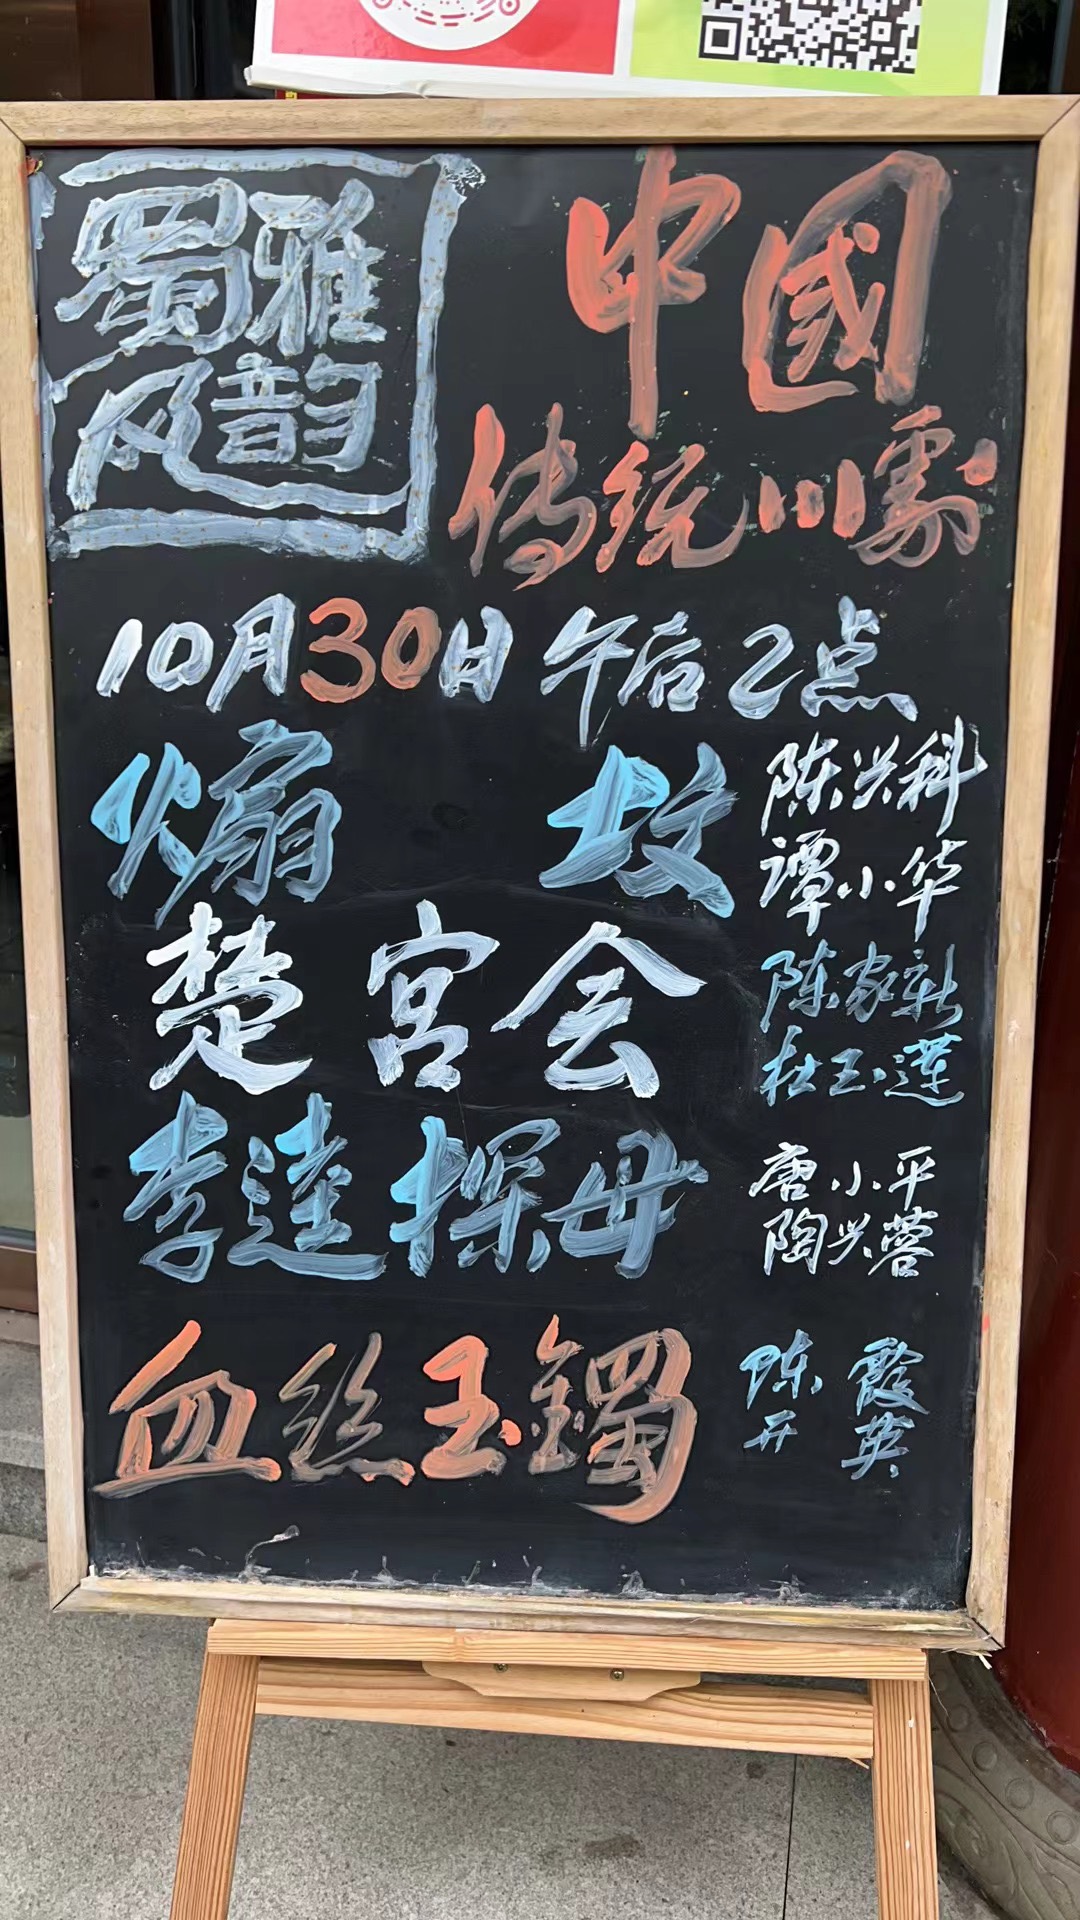 蜀风雅韵
中國
传统川劇
10月30日 午后2点
煽 坟 陈兴科
谭小华
楚宫会 陈家新
杜玉莲
李逵探母 唐小平
陶兴蓉
血丝玉镯 陈霞
开英